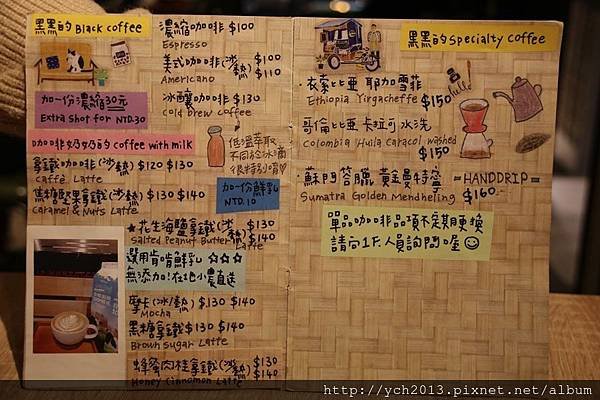 黑黑的Black coffee
濃縮咖啡 $100
Espresso
美式咖啡(冰/熱) $100 $110
Americano
冰釀咖啡 $130
cold brew coffee
加一份濃縮30元
Extra shot for NTD.30
低溫萃取
不同於冰滴
很特別唷♡
咖啡奶奶的coffee with milk
拿鐵咖啡(冰/熱) $120 $130
caffè Latte
加一份鮮乳
NTD.10
焦糖堅果拿鐵(冰/熱) $130 $140
Caramel & Nuts Latte
★花生海鹽拿鐵(冰/熱) $130 $140
Salted Peanut Butter Latte
選用肯肯鮮乳 ☆☆☆
無添加!在地小農直送
摩卡(冰/熱) $130 $140
Mocha
黑糖拿鐵 $130 $140
Brown sugar Latte
蜂蜜肉桂拿鐵(冰/熱) $130 $140
Honey Cinnamon Latte
黑黑的specialty coffee
衣索比亞 耶加雪菲
Ethiopia Yirgacheffe $150
哥倫比亞 卡拉可 水洗
Colombia Huila caracol washed
$150
蘇門答臘 黃金曼特寧 =HANDDRIP=
Sumatra Golden Mendheling $160
單品咖啡品項不定期更換
請向1F人員詢問喔☺
http://ych2013.pixnet.net/album